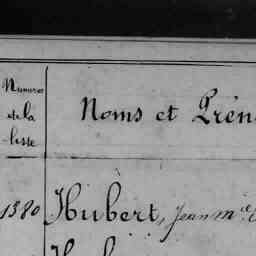 Numéros
de la
liste
Noms et Prén
1380 Hubert, Jean m^ie